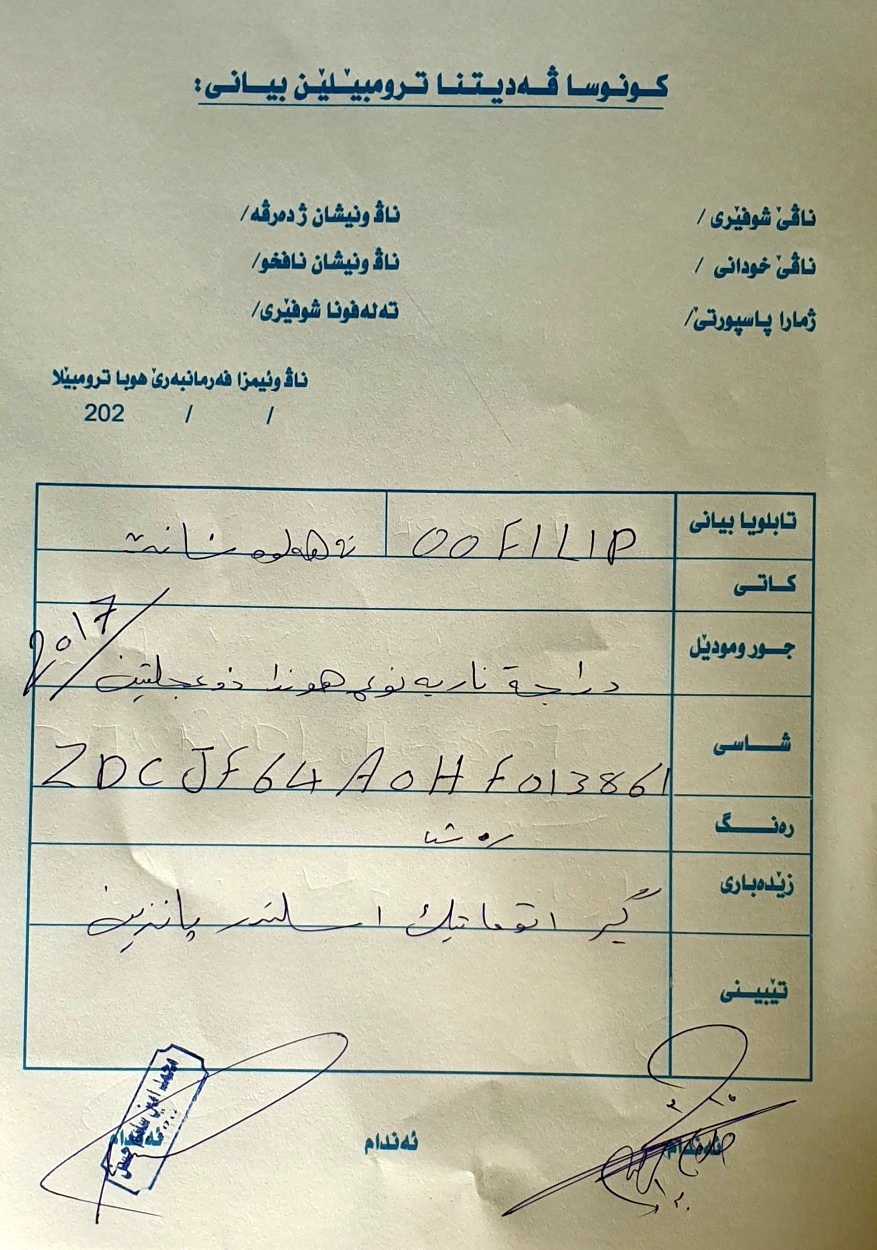 کـونوسا ڤـەدیـتـنـا تـرومبێـلێـن بیـانی:
ناڤێ شوفێری / ناڤ ونیشان ژ دەرڤە/
ناڤێ خودانی / ناڤ ونیشان نافخو/
ژمارا پاسپورتێ/ تەلەفونا شوفێری/
ناڤ وئیمزا فەرمانبەرێ هوبا ترومبێلا
202 / /
تابلویا بیانی OOFILIP
کـاتـی
جـور ومودێل دراجة ناریە نوع هوندا ذو عجلتین / 2017
شـاسی ZDCJF64A0HF013861
رەنـگ رەشا
زێدەباری گیر اتوماتیك ا سلندر پانزین
تێبیـنی
ئەندام ئەندام ئەندام